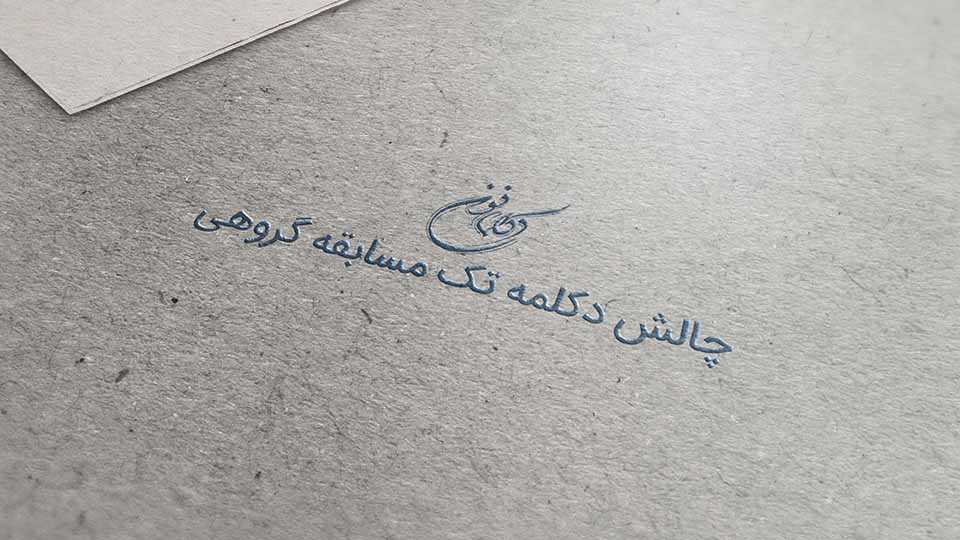 چالش دکلمه تک مسابقه گروهی